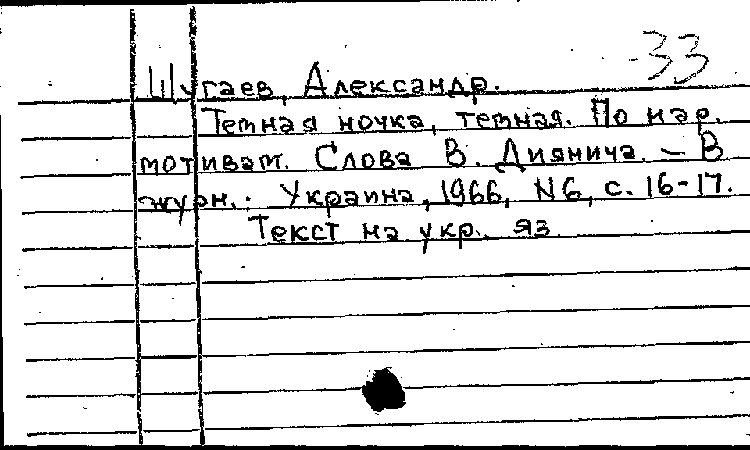 -33
Шугаев, Александр.
Темная ночка, темная. По нар.
мотивам. Слова В. Диянича. – В
журн.: Украина, 1966, N6, с. 16-17.
Текст на укр. яз